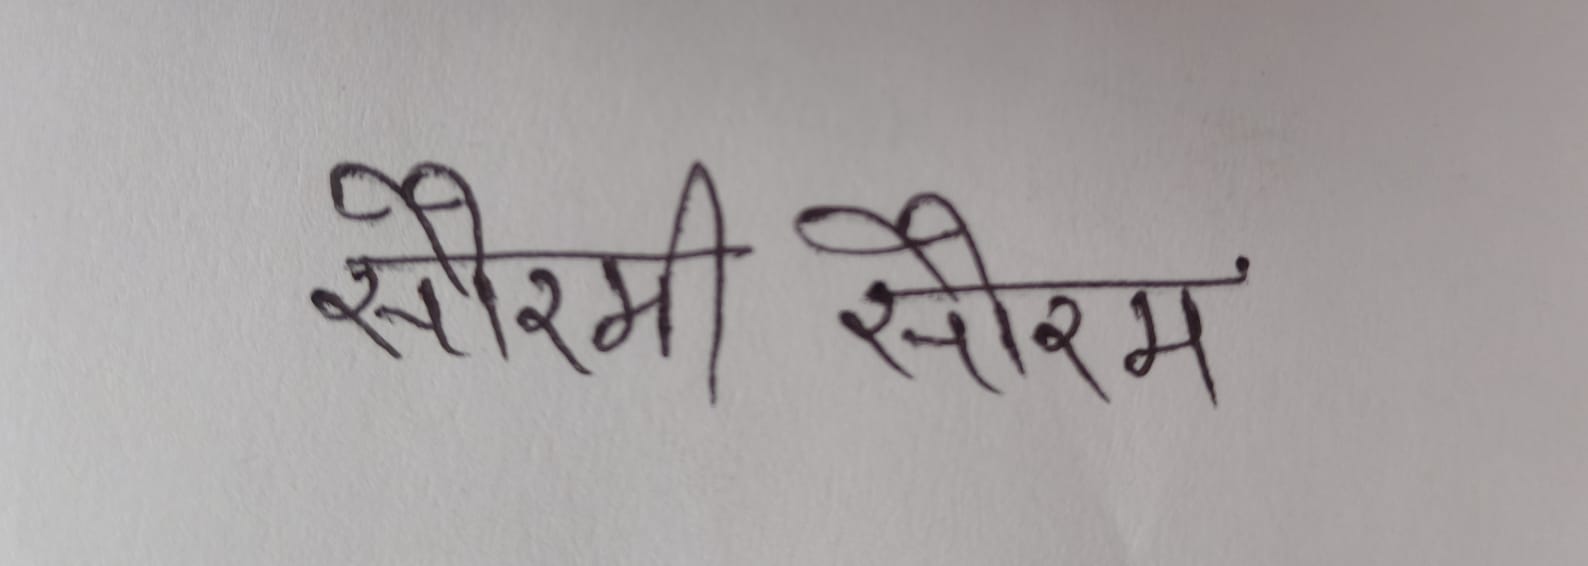 सौरभी सौरभ